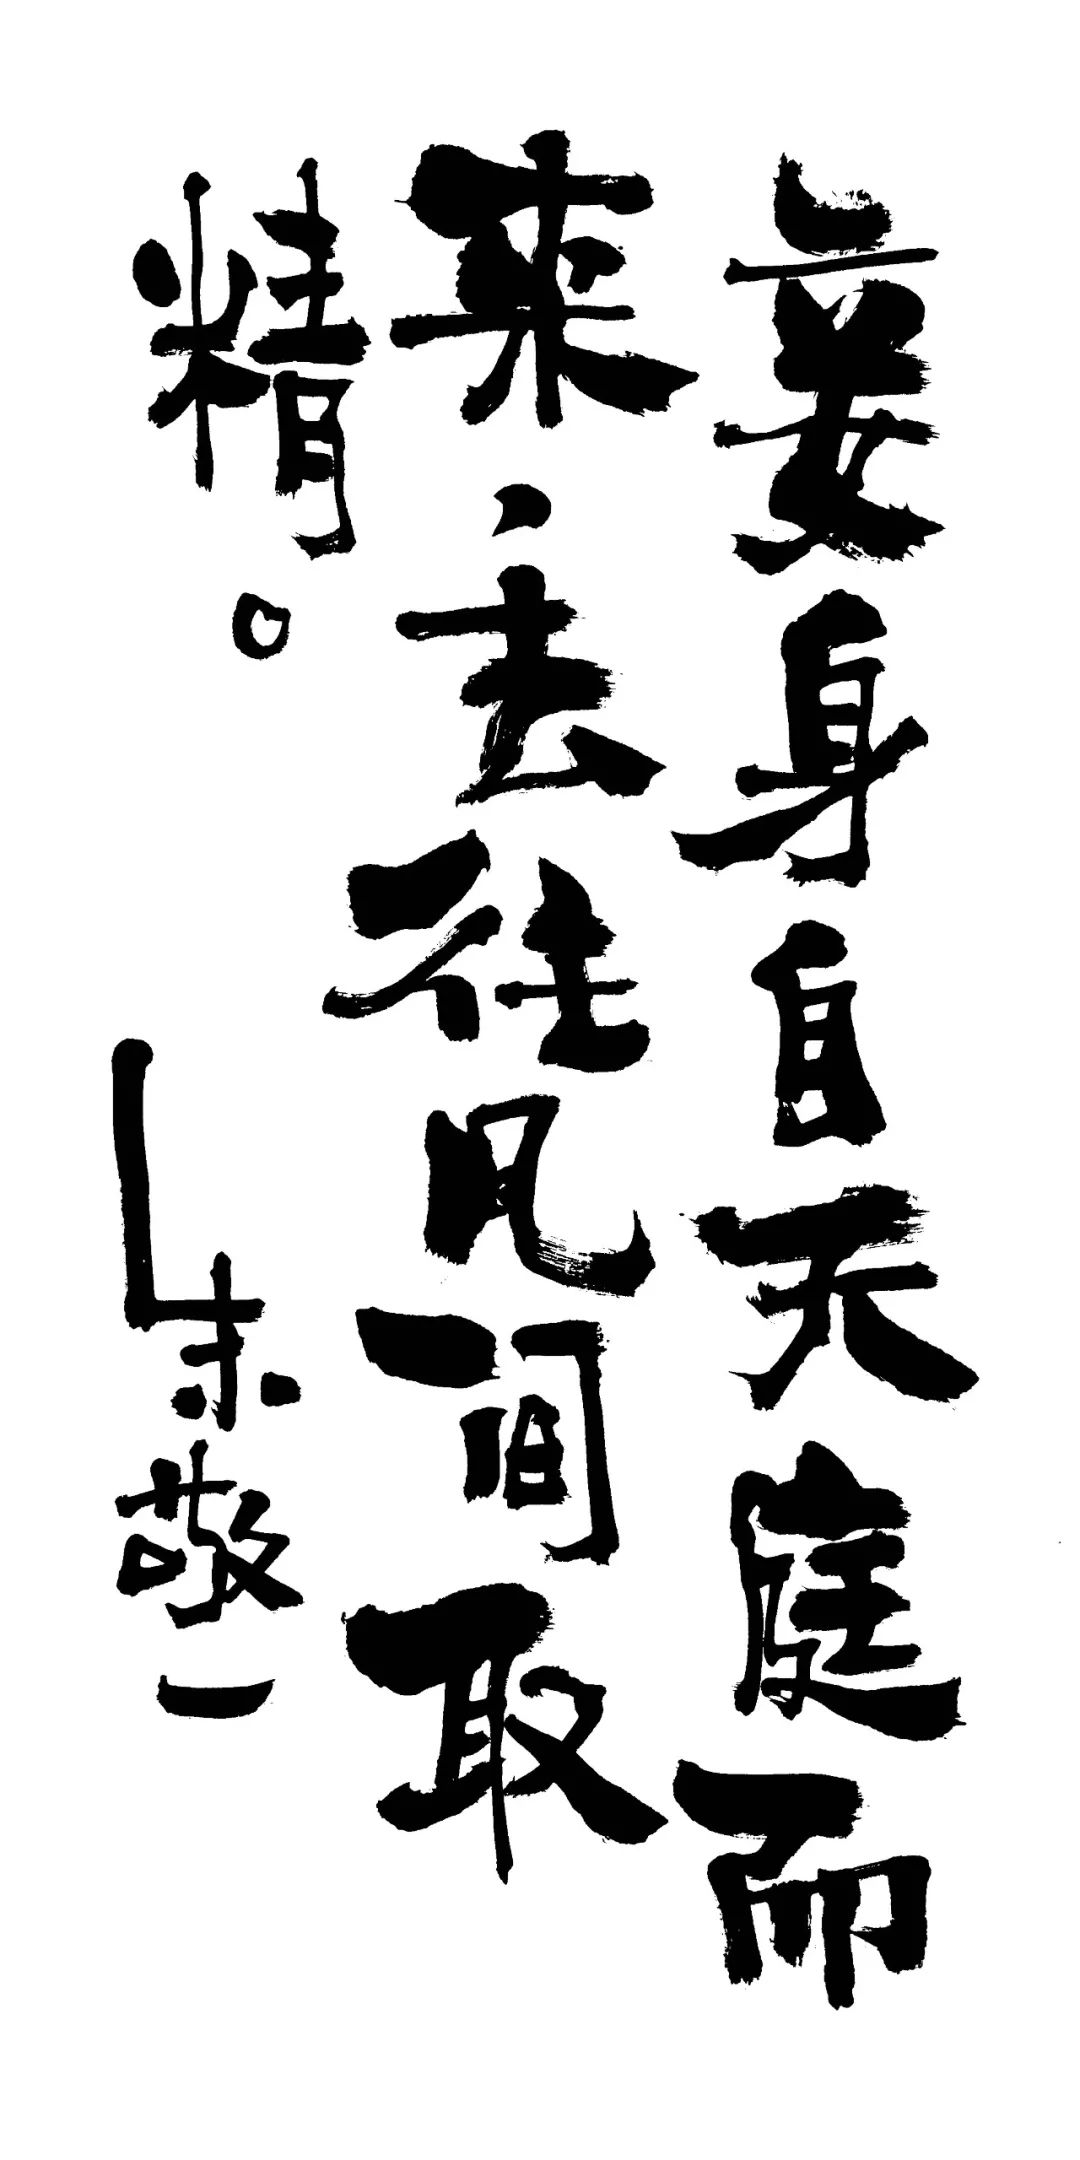 妾身自天庭而
来、去往凡间取
精。
——朱敬一